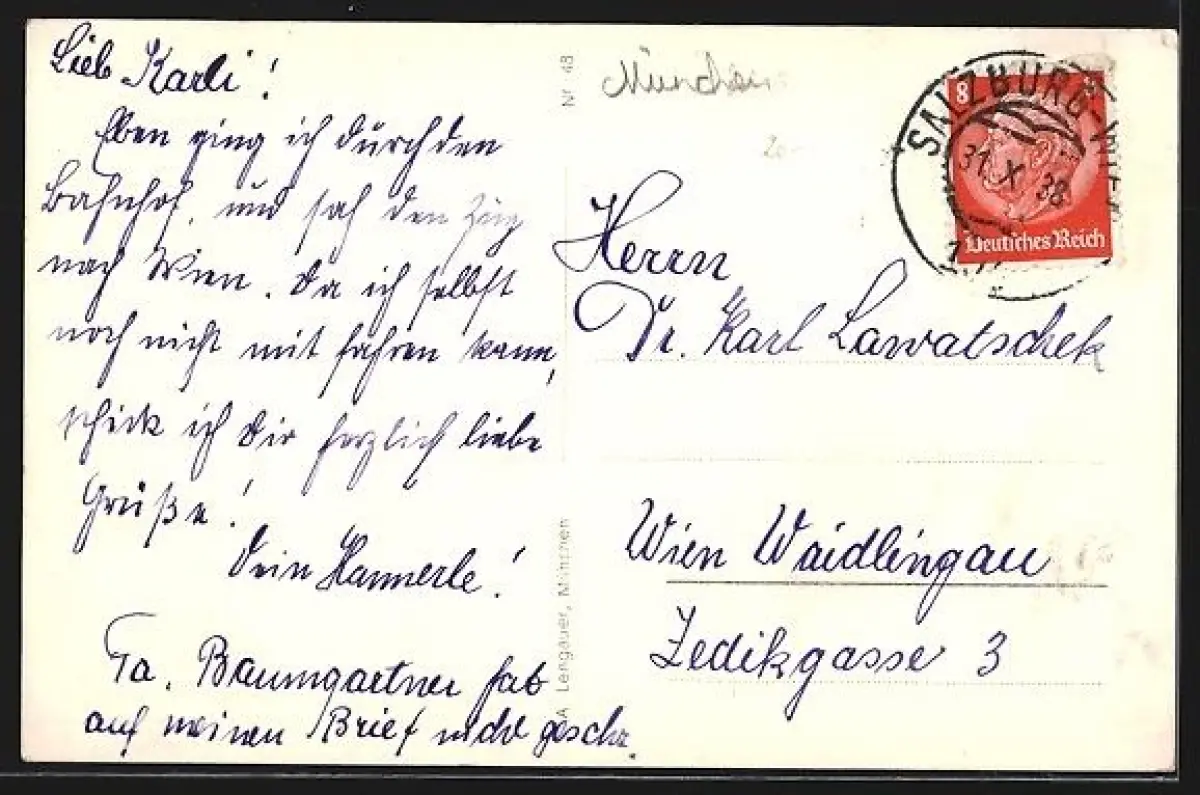 Lieb Karli!
Eben ging ich durch den
Bahnhof, und sah den Zug
nach Wien. Da ich selbst
noch nicht mit fahren kann,
schick ich Dir herzlich liebe
Grüße!
Dein Hannerle!
Fa. Baumgartner hab
auf meinen Brief nicht geschr.
Nr. 48
A Lengauer, München
München
20-
SALZBURG
31 X 38
8
Deutsches Reich
Herrn
Dr. Karl Lawatschek
Wien Waidlingau
Zedikgasse 3